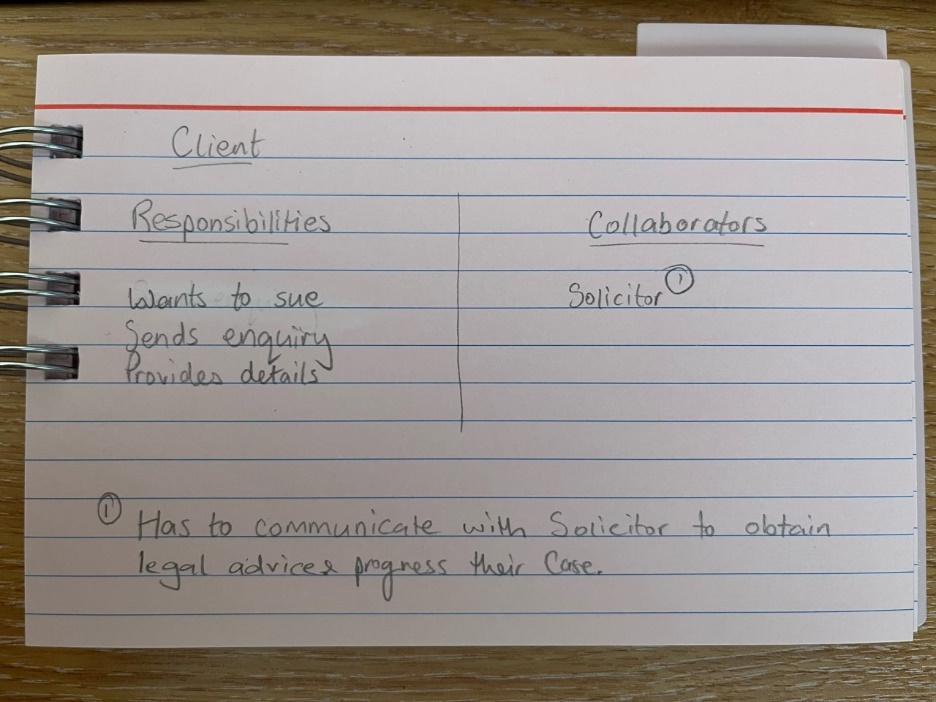 Client
Responsibilities
Collaborators
Wants to sue
Solicitor ①
Sends enquiry
Provides details
① Has to communicate with Solicitor to obtain
legal advice & progress their Case.